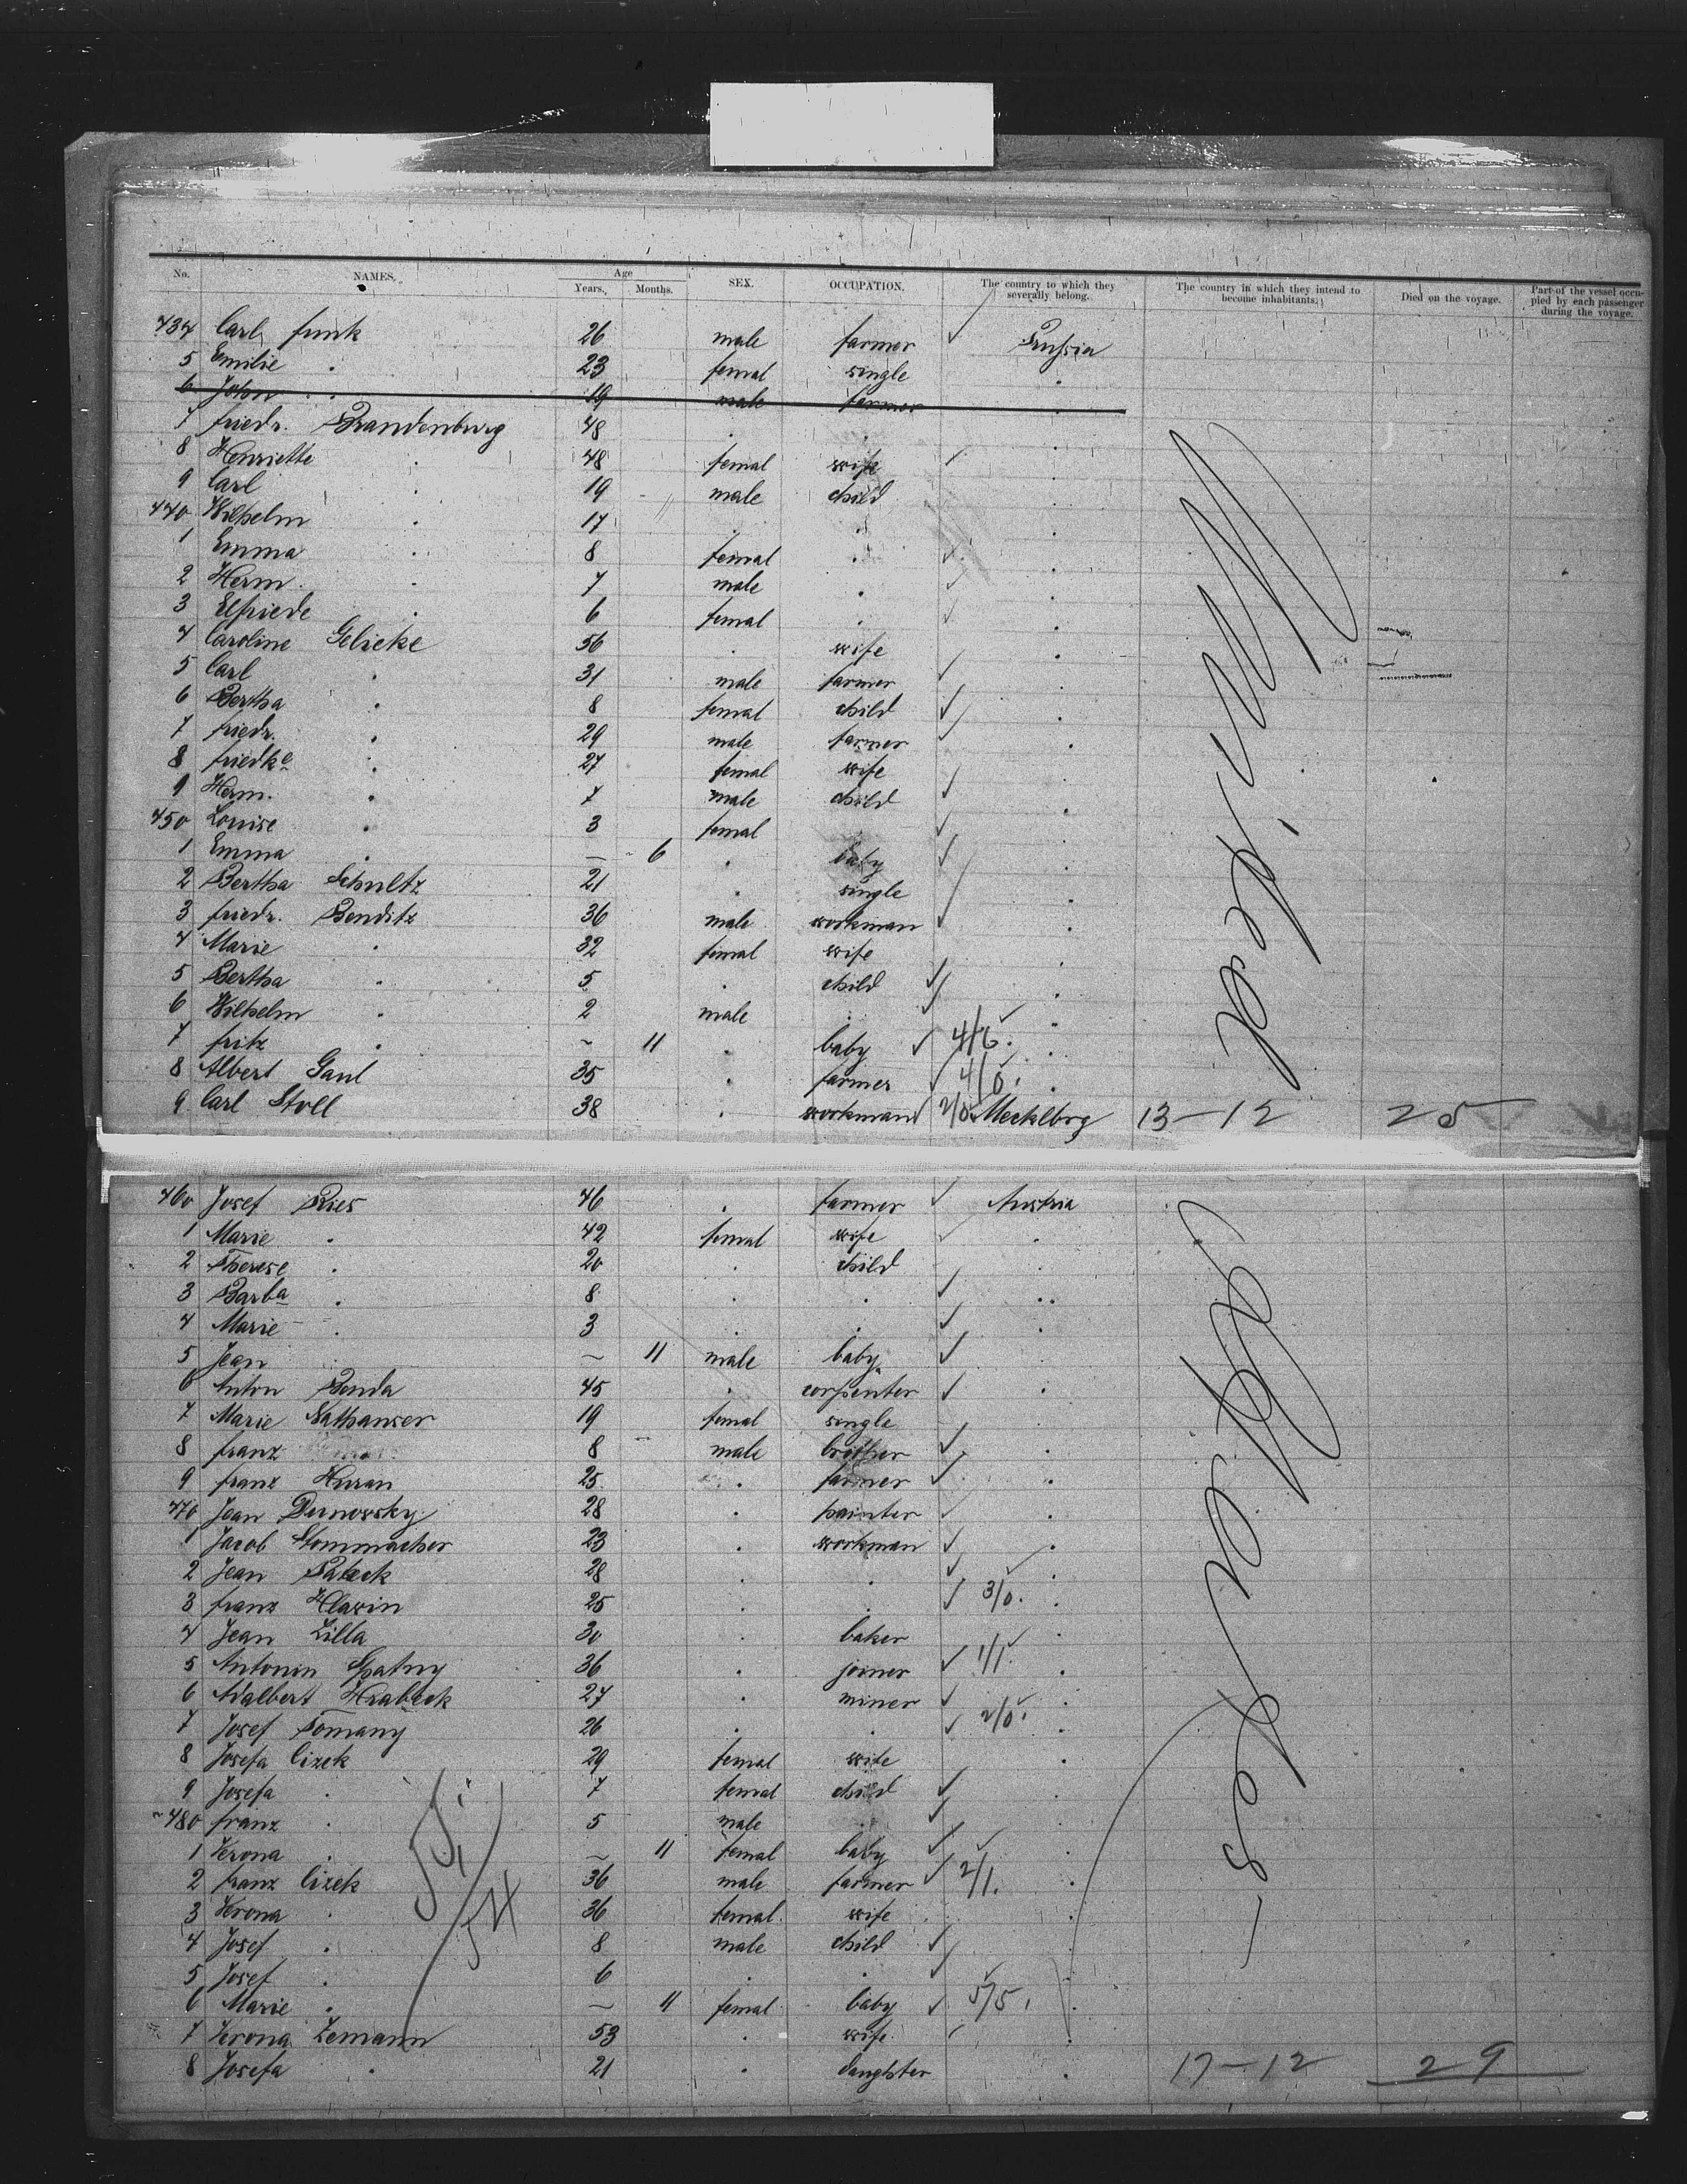 No. NAMES. Age Years. Months. SEX. OCCUPATION. The country to which they severally belong. The country in which they intend to become inhabitants. Died on the voyage. Part of the vessel occupied by each passenger during the voyage.
434 Carl Funk 26 male farmer ✓ Prussia
5 Emilie . 23 femal single .
6 John . . 19 male farmer .
7 Friedr. Brandenburg 48 . . .
8 Henriette . 48 femal wife ✓ .
9 Carl . 19 male child .
440 Wilhelm . 17 . . .
1 Emma . 8 femal . ✓ .
2 Herm. . 7 male . ✓ .
3 Elfriede . 6 femal . ✓ .
4 Caroline Gelicke 56 . wife .
5 Carl . 31 male farmer ✓ .
6 Bertha . 8 femal child ✓ .
7 Friedr. . 29 male farmer ✓ .
8 Friedke . 27 femal wife .
9 Herm. . 7 male child ✓ .
450 Louise . 3 femal . ✓ .
1 Emma . — 6 . baby ✓ .
2 Bertha Schultz 21 . single ✓ .
3 Friedr. Benditz 36 male workman ✓ .
4 Marie . 32 femal wife .
5 Bertha . 5 . child ✓ .
6 Wilhelm . 2 male . ✓ .
7 Fritz . ~ 11 . baby ✓ 4/6. .
8 Albert Gaul 35 . farmer ✓ 4/0. .
9 Carl Stoll 38 . workman 2/0. Mecklbrg 13-12 25
460 Josef Ries 46 . farmer ✓ Austria
1 Marie . 42 femal wife ✓ .
2 Therese . 20 . child .
3 Barba . 8 . . ✓ .
4 Marie . 3 . . ✓ .
5 Jean ~ 11 male baby ✓ .
6 Anton Benda 45 . corpenter ✓ .
7 Marie Nathanser 19 femal single .
8 Franz 8 male brother ✓ .
9 Franz Huran 25 . farmer ✓ .
470 Jean Dunowsky 28 . painter ✓ .
1 Jacob Stommacher 23 . workman ✓ .
2 Jean 28 . . ✓ .
3 Franz Hlawin 25 . . ✓ 3/0. .
4 Jean Zilla 30 . baker .
5 Antonin Spatny 36 . joiner ✓ 1/1. .
6 Adalbert Hrabeck 27 . miner ✓ .
7 Josef Tomany 26 . . ✓ 2/0. .
8 Josefa Cizek 29 femal wife .
9 Josefa . 7 femal child ✓ .
480 Franz . 5 male . ✓ .
1 Verona . ~ 11 femal baby ✓ .
2 Franz Cizek 36 male farmer ✓ 2/1. .
3 Verona . 36 femal wife .
4 Josef . 8 male child ✓
5 Josef . 6 . . ✓ .
6 Marie . ~ 11 femal baby ✓ 5/5. .
7 Verona Zemann 53 . wife ✓
8 Josefa . 21 . daughter . 17-12 29